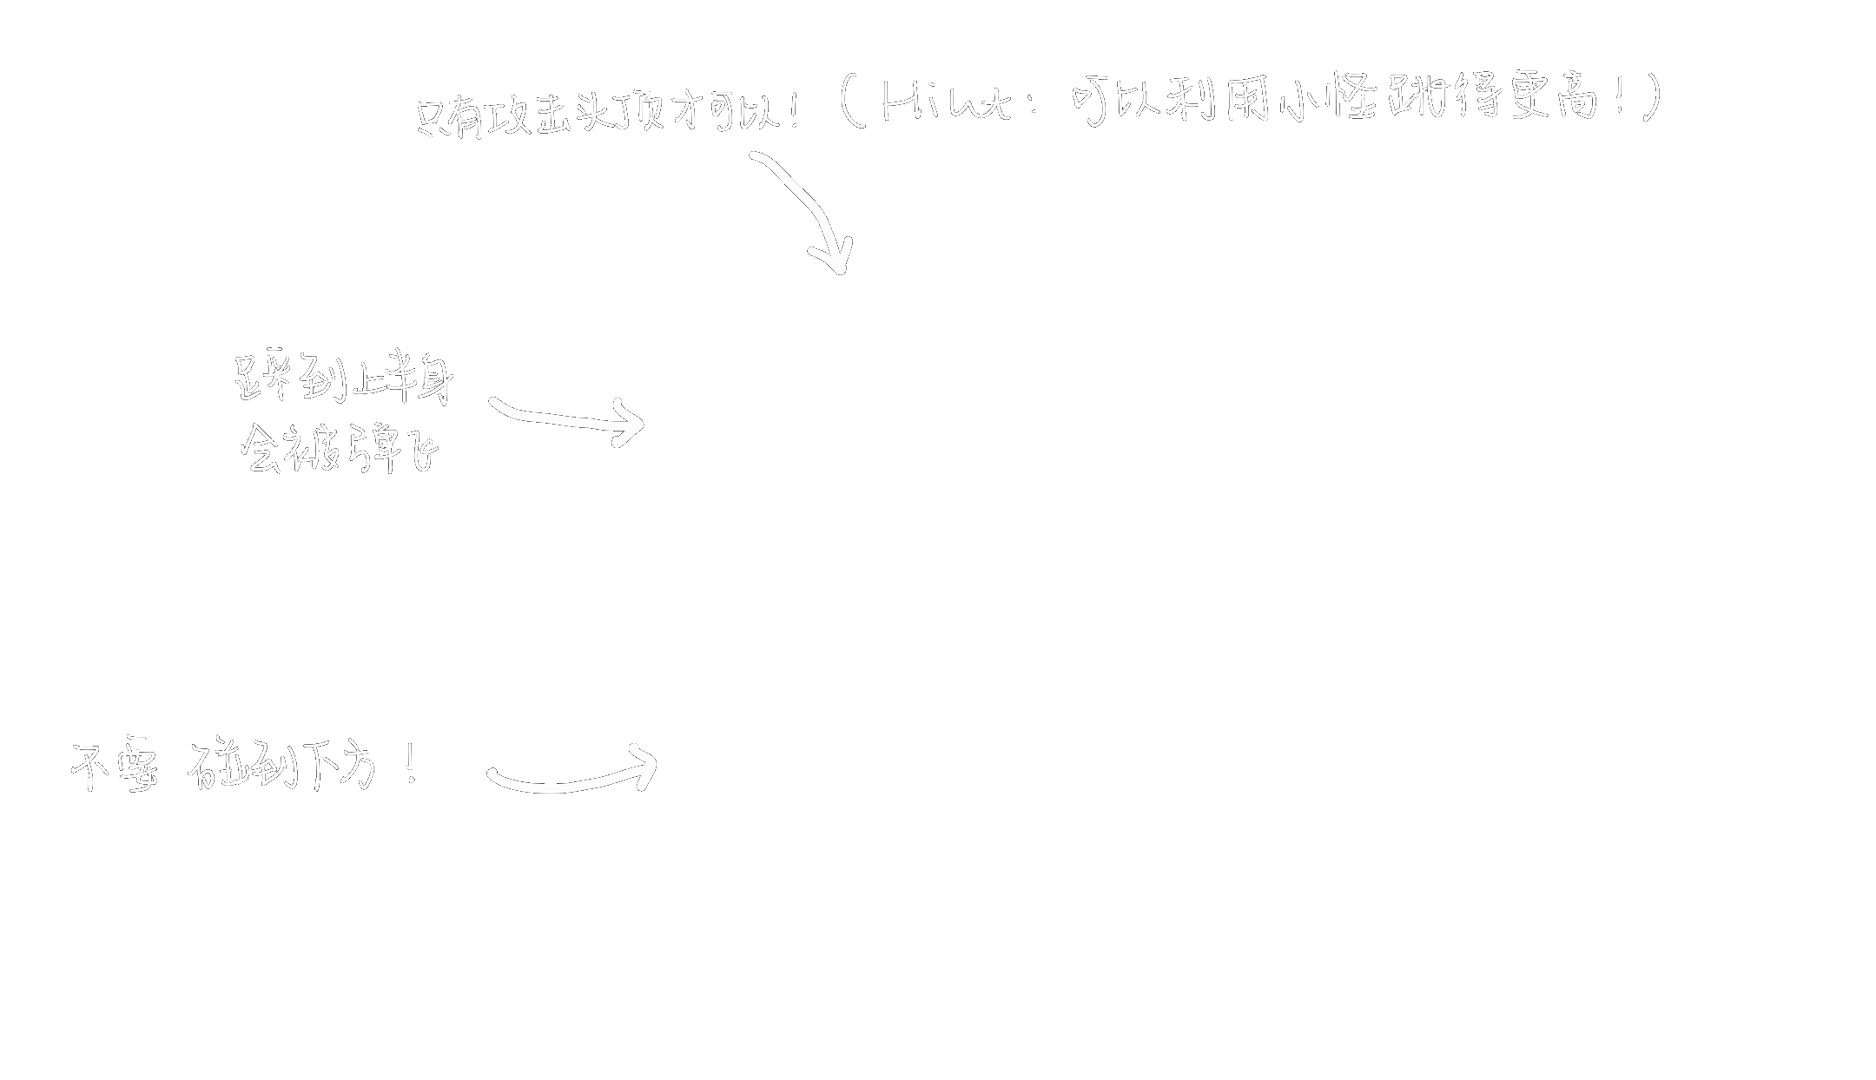 只有攻击头顶才可以！（Hint：可以利用小怪跳得更高！）
踩到上半身
会被弹飞
不要碰到下方！